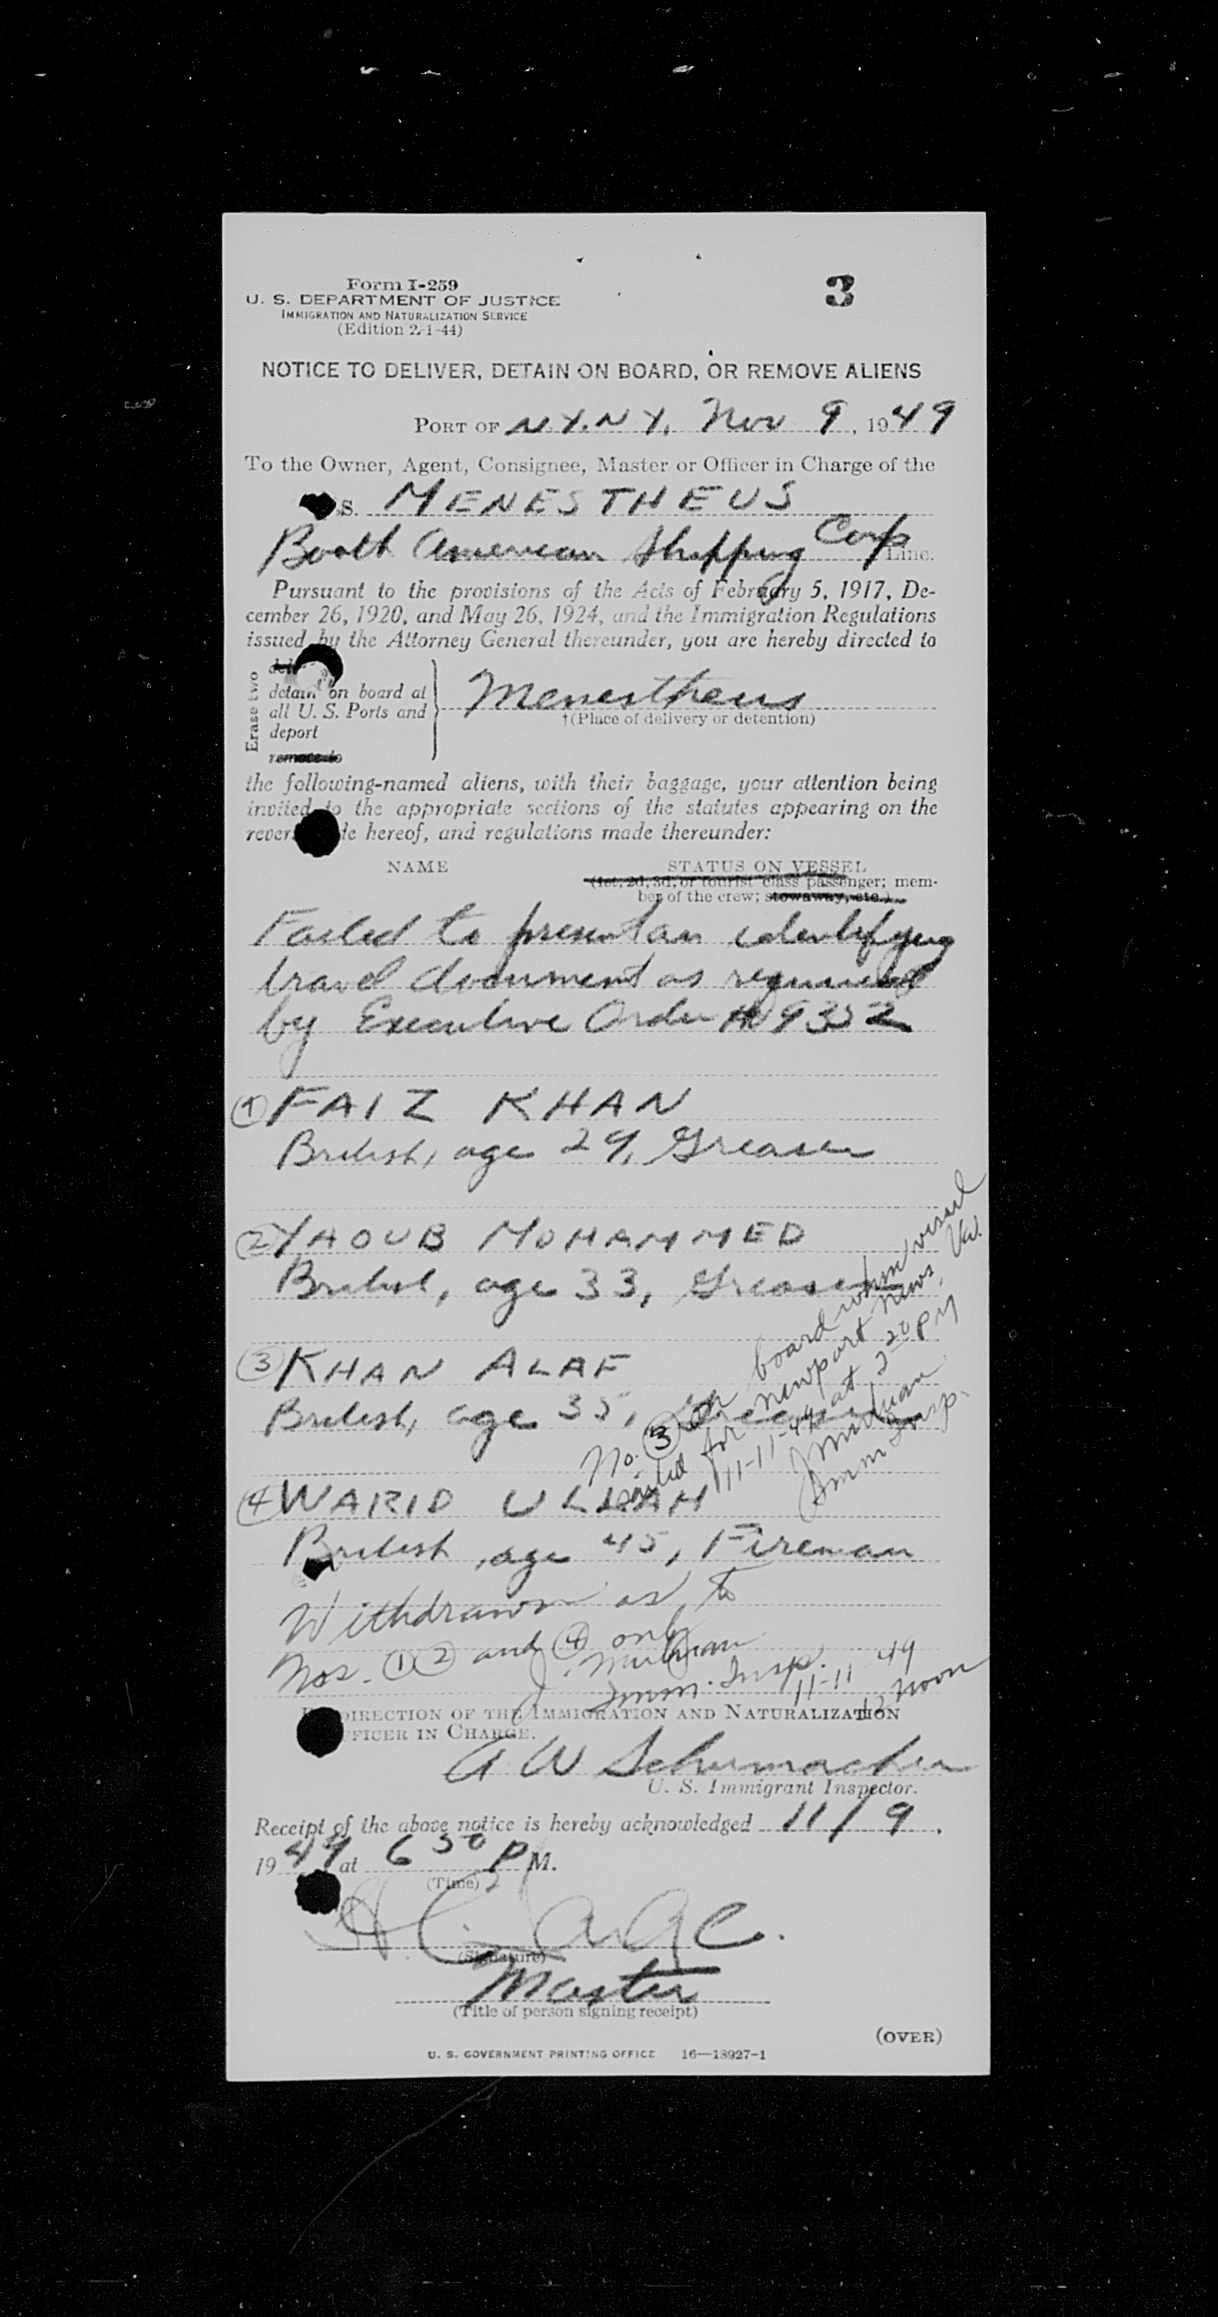 Form I-259
3
U. S. DEPARTMENT OF JUSTICE
IMMIGRATION AND NATURALIZATION SERVICE
(Edition 2-1-44)
NOTICE TO DELIVER, DETAIN ON BOARD, OR REMOVE ALIENS
PORT OF N.Y. N.Y. Nov 9, 1949
To the Owner, Agent, Consignee, Master or Officer in Charge of the
S. MENESTHEUS
Booth American Shipping Corp Line.
Pursuant to the provisions of the Acts of February 5, 1917, De-
cember 26, 1920, and May 26, 1924, and the Immigration Regulations
issued by the Attorney General thereunder, you are hereby directed to
Erase two
detain on board at
all U. S. Ports and
deport
remove to
Menestheus
†(Place of delivery or detention)
the following-named aliens, with their baggage, your attention being
invited to the appropriate sections of the statutes appearing on the
hereof, and regulations made thereunder:
NAME STATUS ON VESSEL
(1st, 2d, 3d, or tourist class passenger; mem-
ber of the crew; stowaway, etc.)
Failed to present an identifying
travel document as required
by Executive Order No 9352
① FAIZ KHAN
British, age 29, Greaser
② YAOUB MOHAMMED
British, age 33, Greaser
③ KHAN ALAF
British, age 35, Greaser
No. ③ on board when vessel
sailed for Newport News, Va.
11-11-49 at 2 20 PM
Imm Insp.
④ WARID ULLAH
British, age 45, Fireman
Withdrawn as to
Nos. ① ② and ④ only
Imm. Insp. 11-11 49
12 Noon
DIRECTION OF THE IMMIGRATION AND NATURALIZATION
OFFICER IN CHARGE.
A W Schumacher
U. S. Immigrant Inspector.
Receipt of the above notice is hereby acknowledged 11/9,
1949 at 6 30 P M.
(Time)
(Signature)
Master
(Title of person signing receipt)
(OVER)
U. S. GOVERNMENT PRINTING OFFICE 16—18927-1